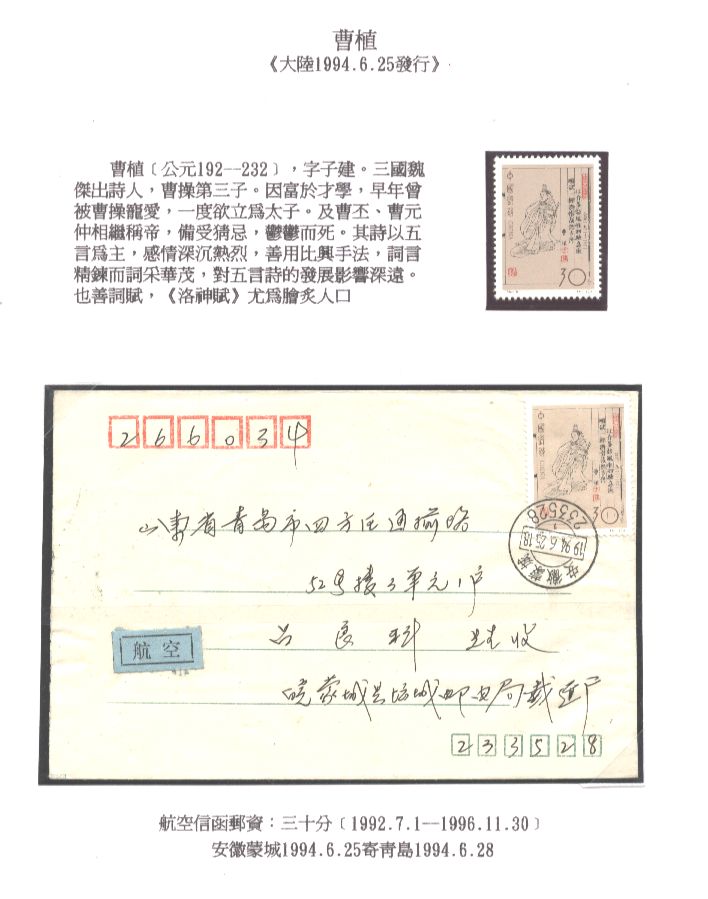 曹植
《大陸1994.6.25發行》
曹植﹝公元192--232﹞，字子建。三國魏
傑出詩人，曹操第三子。因富於才學，早年曾
被曹操寵愛，一度欲立爲太子。及曹丕、曹元
仲相繼稱帝，備受猜忌，鬱鬱而死。其詩以五
言爲主，感情深沉熱烈，善用比興手法，詞言
精鍊而詞采華茂，對五言詩的發展影響深遠。
也善詞賦，《洛神賦》尤爲膾炙人口
中国邮政
30
266034
中国邮政
30
233528
1994.6.25.18
安徽蒙城
山东省青岛市四方区
52号楼3单元1户
吕良科 收
航空
皖蒙城县坛城邮电局
233528
航空信函郵資：三十分﹝1992.7.1—1996.11.30﹞
安徽蒙城1994.6.25寄靑島1994.6.28